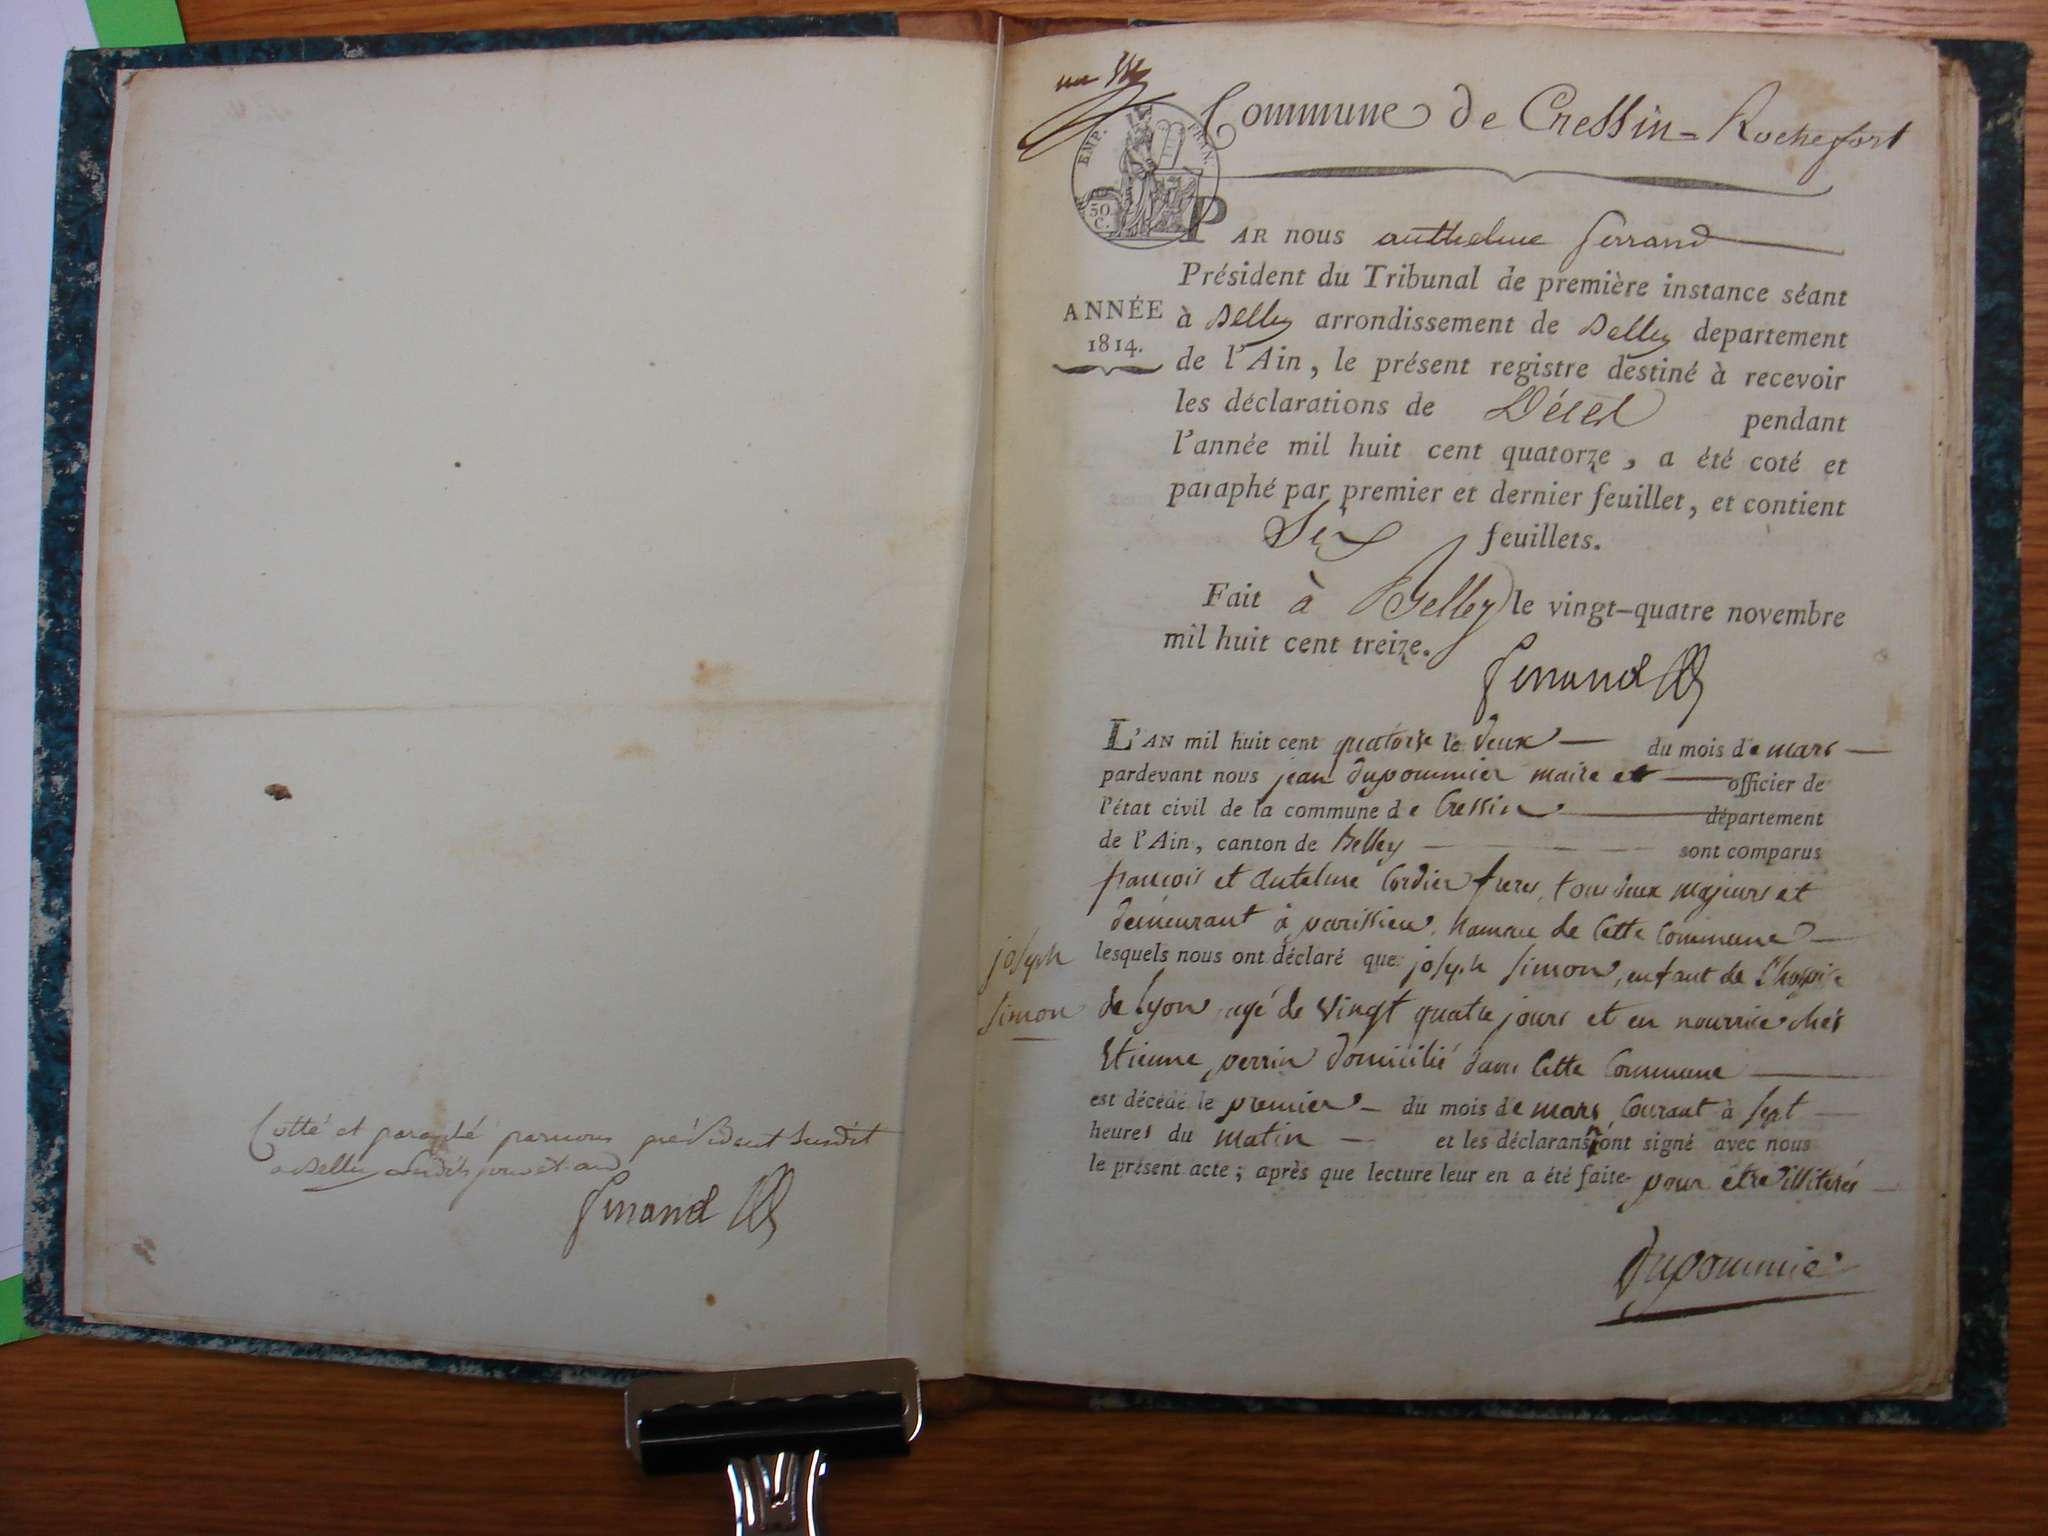 Cotté et paraphé par nous président susdit
a Belley lesdits jour et an
ferrand
Commune de Cressin-Rochefort
EMP. FRAN.
50 C.
PAR nous anthelme ferrand
Président du Tribunal de première instance séant
ANNÉE
1814.
à Belley arrondissement de Belley departement
de l'Ain, le présent registre destiné à recevoir
les déclarations de Décès pendant
l'année mil huit cent quatorze, a été coté et
paraphé par premier et dernier feuillet, et contient
Six feuillets.
Fait à Belley le vingt-quatre novembre
mil huit cent treize.
ferrand
L'AN mil huit cent quatorze le deux du mois de mars
pardevant nous jean dupommier maire et officier de
l'état civil de la commune de Cressin département
de l'Ain, canton de Belley sont comparus
françois et Antelme Cordier freres, tous deux majeurs et
demeurant à parissieu, hameau de Cette Commune
joseph
simon
lesquels nous ont déclaré que joseph simon, enfant de l'hospice
de Lyon agé de vingt quatre jours et en nourrice chés
Etienne perrin domicilié dans Cette Commune
est décédé le premier du mois de mars Courant à sept
heures du matin et les déclarans n'ont signé avec nous
le présent acte; après que lecture leur en a été faite pour être illiterés
dupommie